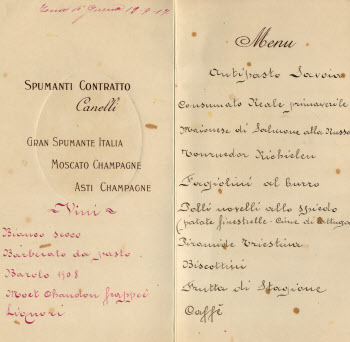 SPUMANTI CONTRATTO
Canelli
GRAN SPUMANTE ITALIA
MOSCATO CHAMPAGNE
ASTI CHAMPAGNE
Vini
Bianco secco
Barberato da pasto
Barolo 908
Moet Chandon frappé
Liquori
Menu
Antipasto Savoia
Consumato Reale primaverile
Maionese di Salmone alla Russa
Tournedor Richelieu
Fagiolini al burro
Polli novelli allo spiedo
(patate finestrelle - Cime di lattuga
Piramide Triestina
Biscottini
Frutta di Stagione
Caffè